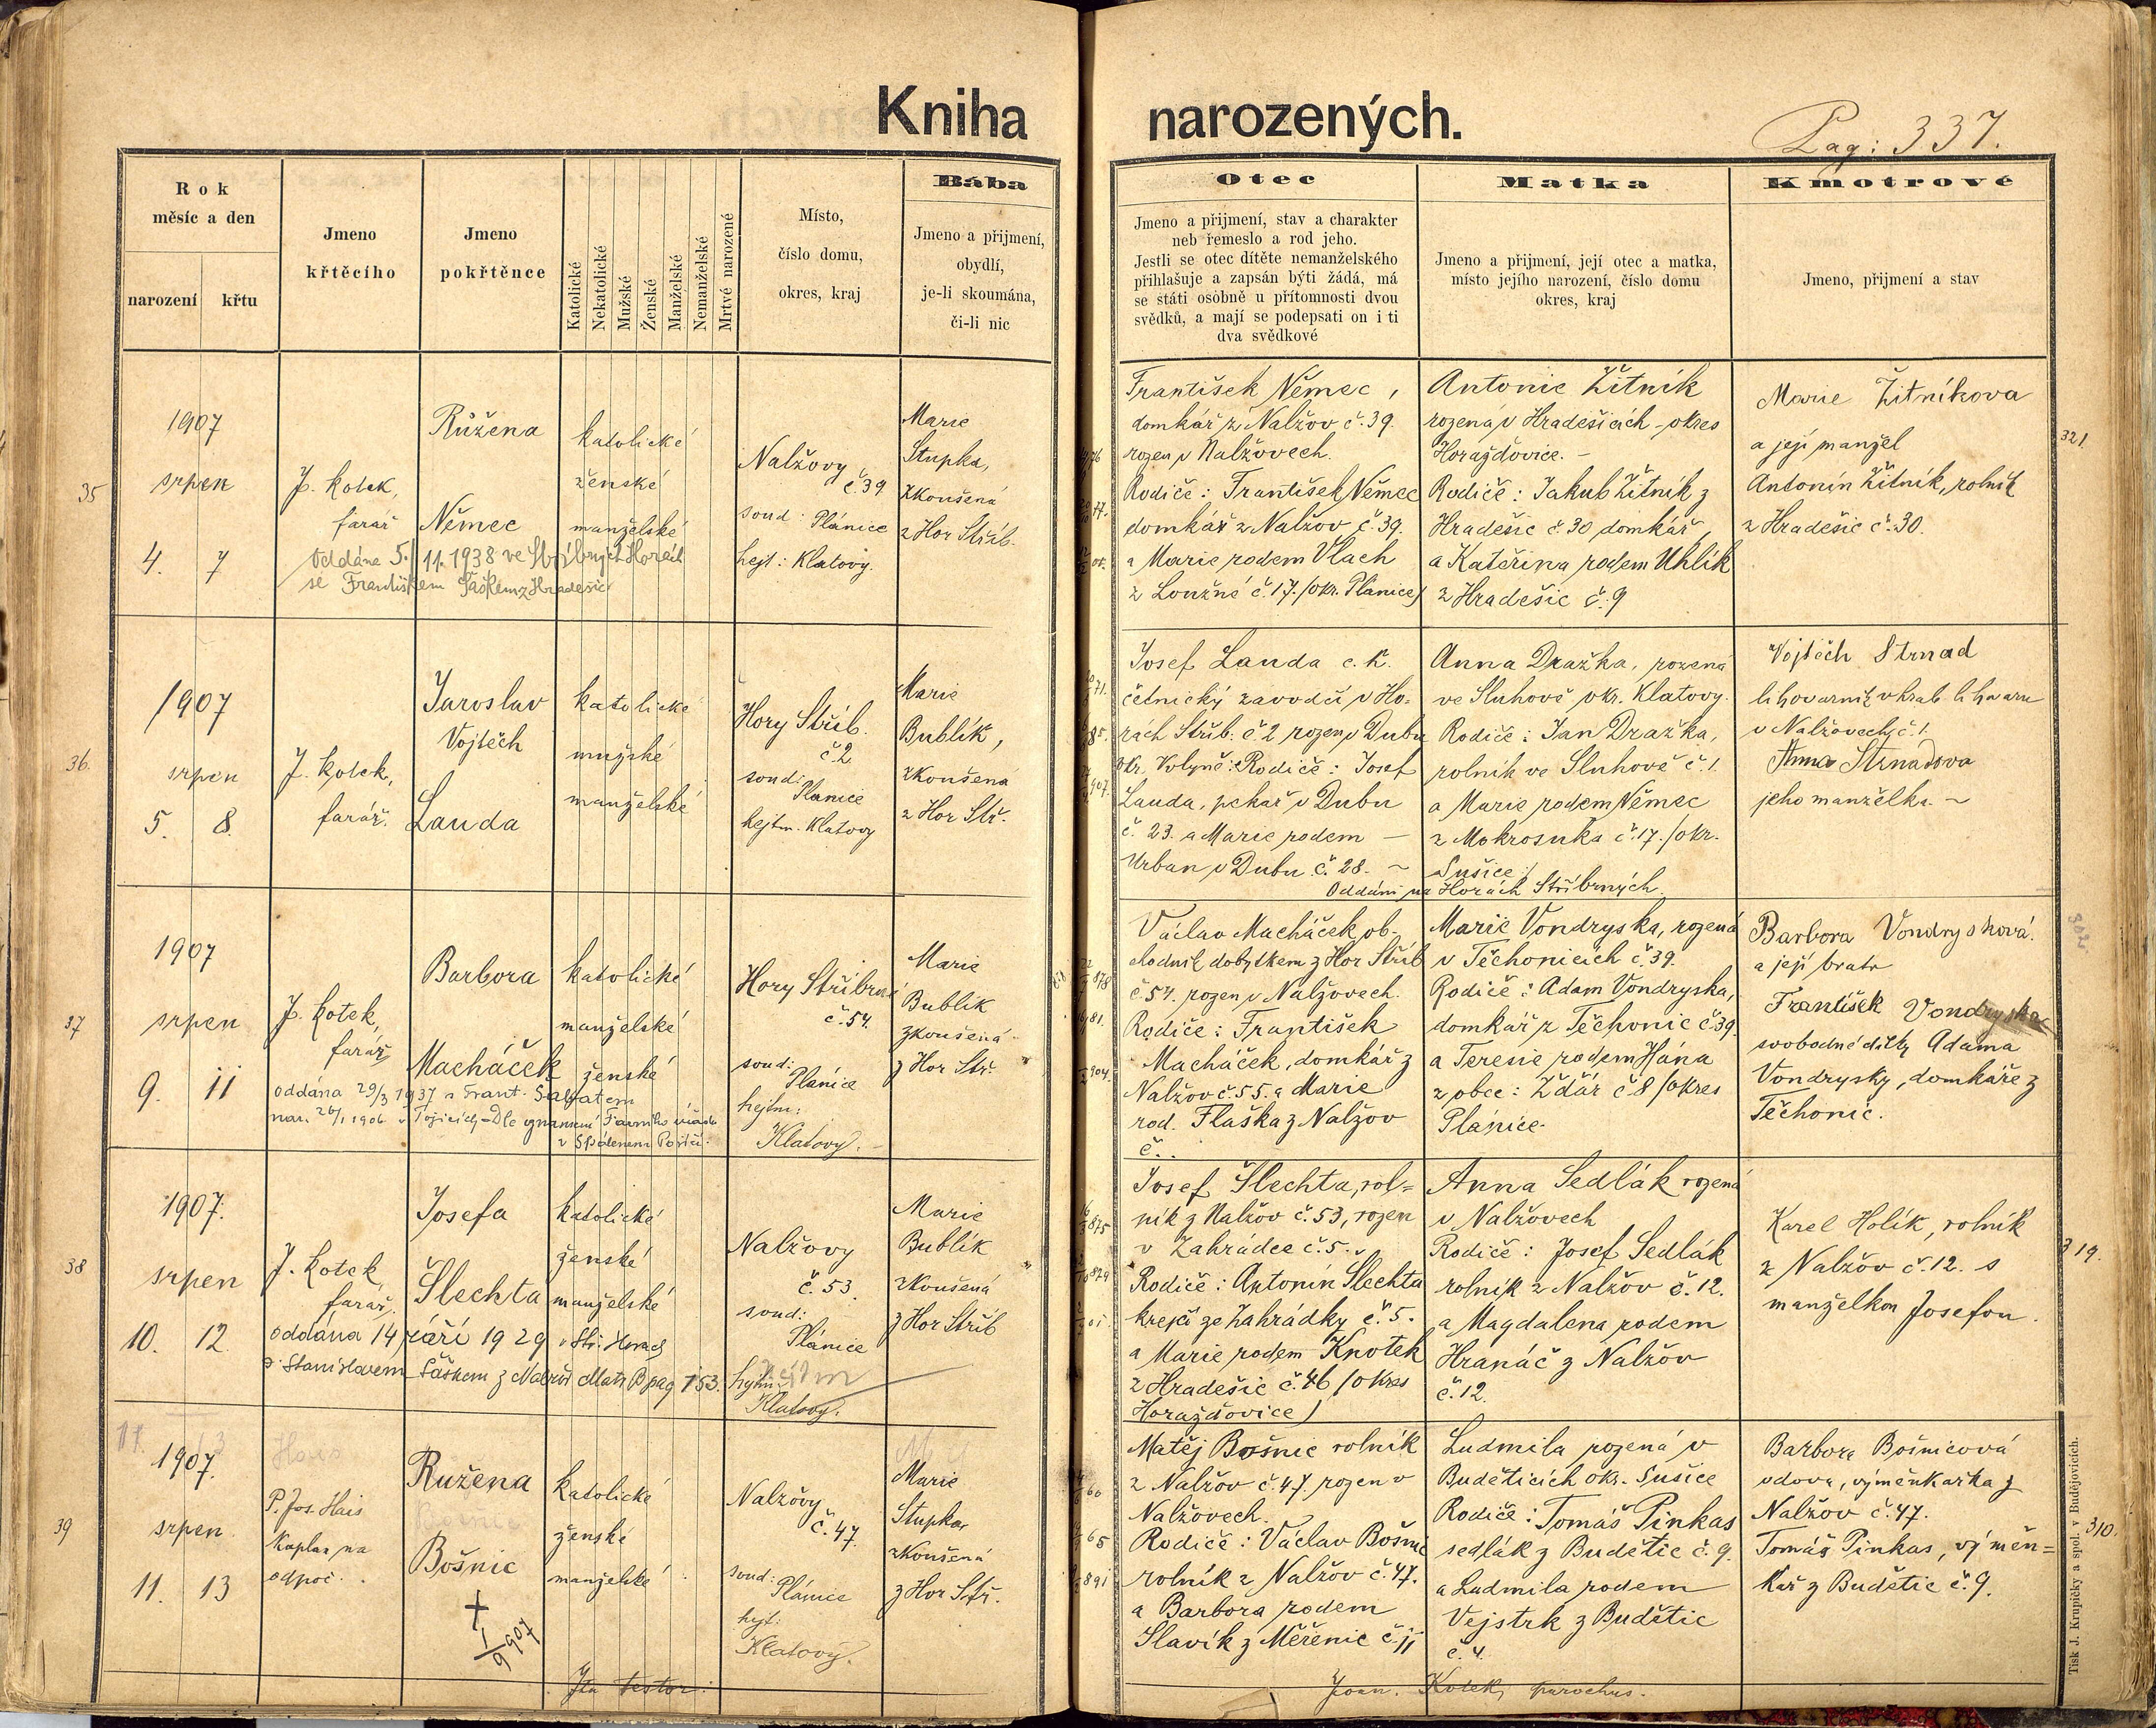 Kniha narozených.
Pag: 337.
Rok
měsíc a den
narození
křtu
Jmeno
křtěcího
Jmeno
pokřtěnce
Katolické
Nekatolické
Mužské
Ženské
Manželské
Nemanželské
Mrtvé narozené
Místo,
číslo domu,
okres, kraj
Bába
Jmeno a přijmení,
obydlí,
je-li skoumána,
či-li nic
Otec
Jmeno a přijmení, stav a charakter
neb řemeslo a rod jeho.
Jestli se otec dítěte nemanželského
přihlašuje a zapsán býti žádá, má
se státi osobně u přítomnosti dvou
svědků, a mají se podepsati on i ti
dva svědkové
Matka
Jmeno a přijmení, její otec a matka,
místo jejího narození, číslo domu
okres, kraj
Kmotrové
Jmeno, přijmení a stav
35
1907
srpen
4. 7
J. Kotek,
farář
Růžena
Němec
katolické
ženské
manželské
Oddána 5./11. 1938 ve Stříbrných Horách
se Františkem Šaškem z Hradešic
Nalžovy
č. 39
soud: Plánice
hejt: Klatovy.
Marie
Stupka,
zkoušená
z Hor Stříb.
František Němec,
domkář z Nalžov č. 39.
rozen v Nalžovech.
Rodiče: František Němec
domkář z Nalžov č. 39.
a Marie rodem Vlach
z Loužné č. 17. (okr. Plánice)
Antonie Žitník
rozená v Hradešicích - okres
Horažďovice. -
Rodiče: Jakub Žitník z
Hradešic č. 30 domkář,
a Kateřina rodem Uhlík
z Hradešic č. 9
Marie Žitníkova
a její manžel
Antonín Žitník, rolník
z Hradešic č. 30.
321.
36.
1907
srpen
5. 8.
J. Kotek,
farář.
Jaroslav
Vojtěch
Landa
katolické
mužské
manželské
Hory Stříb.
č. 2
soud:
Plánice
hejtm. Klatovy
Marie
Bublík,
zkoušená
z Hor Stř.
Josef Landa c. k.
četnický závodčí v Ho-
rách Stříb. č. 2 rozen v Dubu
okr. Volyně: Rodiče: Josef
Landa, pekař v Dubu
č. 23. a Marie rodem —
Urban v Dubu č. 28. ~
Anna Dražka, rozená
ve Sluhově okr. Klatovy.
Rodiče: Jan Dražka,
rolník ve Sluhově č. 1.
a Marie rodem Němec
z Mokrosuka č. 17. /okr.
Sušice/
Oddáni na Horách Stříbrných.
Vojtěch Strnad
lihovarník v hrab. lihovaru
v Nalžovech č. 1.
Anna Strnadova
jeho manželka. ~
37
1907
srpen
9. 11
J. Kotek,
farář
Barbora
Macháček
katolické
manželské
ženské
oddána 29/3 1937 s Frant.
nar. 26/1 1906
Hory Stříbrné
č. 54.
soud:
Plánice
hejtm:
Klatovy. -
Marie
Bublík
zkoušená
z Hor Stř.
Václav Macháček, ob-
chodník dobytkem z Hor Stříb
č. 54. rozen v Nalžovech.
Rodiče: František
Macháček, domkář z
Nalžov č. 55. a Marie
rod. Flaška z Nalžov
č..
Marie Vondryska, rozená
v Těchonicích č. 39.
Rodiče: Adam Vondryska,
domkář z Těchonic č. 39.
a Teresie rodem Hána
z obce: Ždár č. 8 /okres
Plánice.
Barbora Vondryskova.
a její bratr
František Vondryska
svobodné dítky Adama
Vondrysky, domkáře z
Těchonic.
38
1907.
srpen
10. 12.
J. Kotek,
farář.
Josefa
Šlechta
katolické
ženské
manželské
oddána 14 září 1929 v Stř. Horách
s Stanislavem Šaškem z Nalžov Matr. B pag 153.
Nalžovy
č. 53.
soud:
Plánice
hejtm.
Klatovy.
Marie
Bublík
zkoušená
z Hor Stříb
Josef Šlechta, rol-
ník z Nalžov č. 53, rozen
v Zahrádce č. 5.
Rodiče: Antonín Šlechta
krejčí ze Zahrádky č. 5.
a Marie rodem Knotek
z Hradešic č. 46 /okres
Horažďovice)
Anna Sedlák rozená
v Nalžovech
Rodiče: Josef Sedlák
rolník z Nalžov č. 12.
a Magdalena rodem
Hranáč z Nalžov
č. 12.
Karel Holík, rolník
z Nalžov č. 12. s
manželkou Josefou.
319.
39
1907.
srpen
11. 13
P. Jos. Hais
Kaplan na
odpoč.
Ružena
Bošnic
† 1/9 907
katolické
ženské
manželské
Nalžovy
č. 47.
soud:
Plánice
hejt:
Klatovy.
Marie
Stupka
zkoušená
z Hor Stř.
Matěj Bošnic rolník
z Nalžov č. 47. rozen v
Nalžovech.
Rodiče: Václav Bošnic
rolník z Nalžov č. 47.
a Barbora rodem
Slavík z Měřenic č. 11
Ludmila rozená v
Budětících okr. Sušice
Rodiče: Tomáš Pinkas
sedlák z Budětic č. 9.
a Ludmila rodem
Vejstrk z Budětic
č. 4.
Barbora Bošnicová
vdova, výměnkařka z
Nalžov č. 47.
Tomáš Pinkas, výměn-
kář z Budětic č. 9.
310.
Ita testor:
Joan. Kotek, parochus.
Tisk J. Krupičky a spol. v Budějovicích.